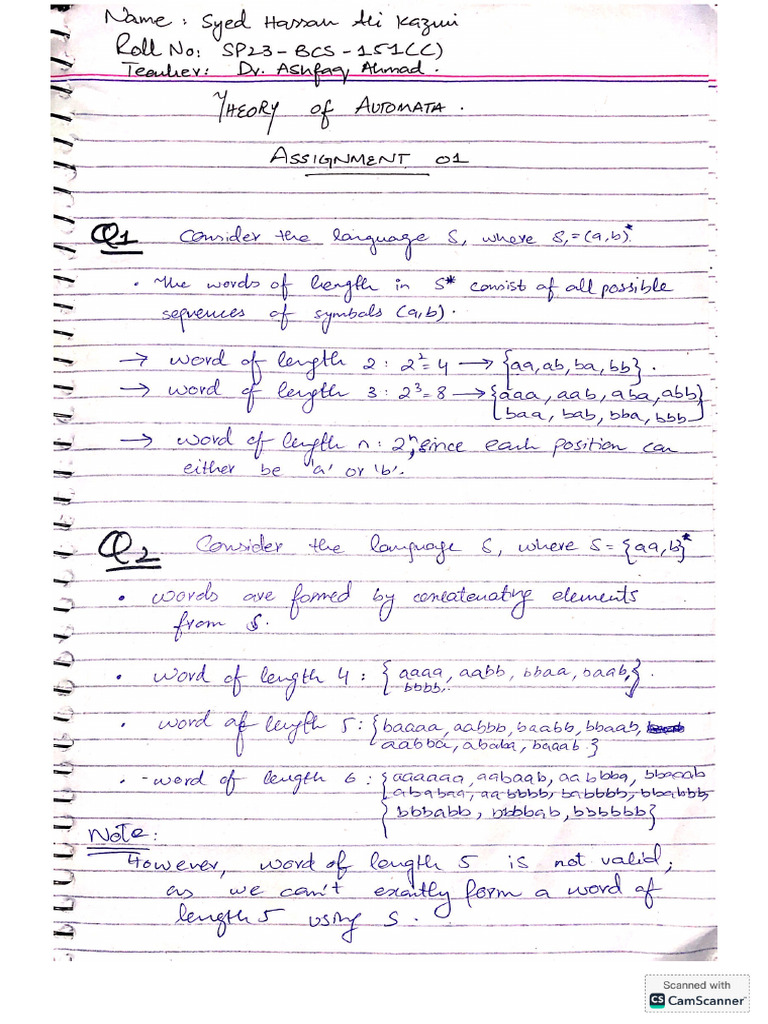 Name: Syed Hassan Ali Kazmi
Roll No: SP23-BCS-151(C)
Teacher: Dr. Ashfaq Ahmad.
THEORY of AUTOMATA.
ASSIGNMENT 01
Q1 Consider the language S, where S,=(a,b)*
• The words of length in S* consist of all possible
sequences of symbols (a,b).
→ word of length 2 : 2²=4 → {aa,ab,ba,bb}.
→ word of length 3 : 2³=8 → {aaa, aab, aba, abb}
baa, bab, bba, bbb
→ word of length n : 2ⁿ, since each position can
either be 'a' or 'b'.
Q2 Consider the language S, where S={aa,b}*
• words are formed by concatenating elements
from S.
• word of length 4 : {aaaa, aabb, bbaa, baab,}.
bbbb.
• word of length 5 : {baaaa, aabbb, baabb, bbaab,
aabba, ababa, baaab.}
• -word of length 6 : {aaaaaa, aabaab, aabbba, bbaaab
ababaa, aabbbb, babbbb, bbabbb,
bbbabb, bbbbab, bbbbbb}
Note:
However, word of length 5 is not valid;
as we can't exactly form a word of
length 5 using S.
Scanned with
CS CamScanner